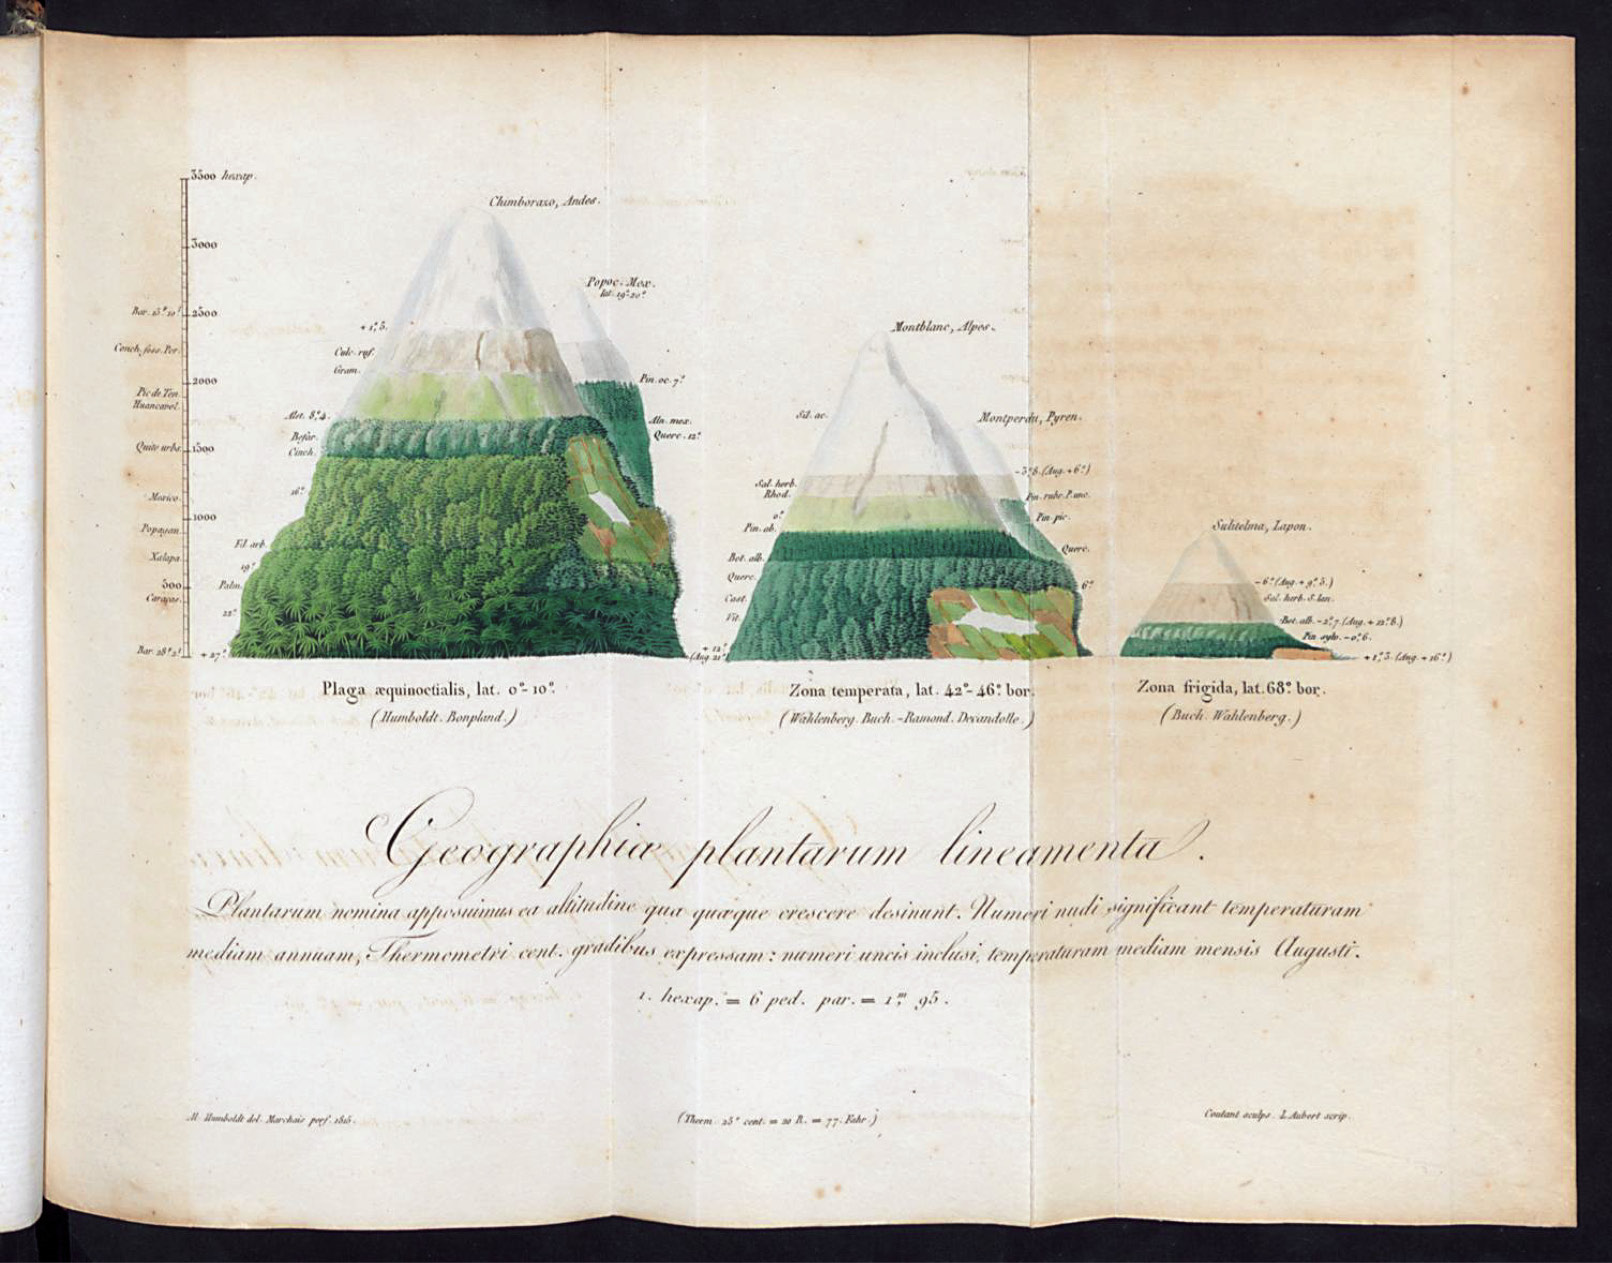 3500 hexap.
Chimborazo, Andes.
3000
Popoc. Mex.
lat. 19°-20°
2500
+1°,5.
Montblanc, Alpes.
Conch. foss. Per.
Calc. ruf.
Gram.
2000
Pic de Ten.
Huancavel.
Pin. oc. 7°
Alst. 8°,4.
Aln. mex.
Sil. ac.
Montperdu, Pyren.
Befar.
Querc. 12°
Quito urbs.
1500
Cinch.
-3°,8. (Aug. +6°)
Sal. herb.
Rhod.
Pin. rubr. P. unc.
Mexico.
16°
1000
0°
Pin. ab.
Pin. pic.
Suhtelma, Lapon.
Popayan.
Fil. arb.
Querc.
Xalapa.
19°
Bet. alb.
500
Palm.
Querc.
6°
-6° (Aug. + 9°,5.)
Caraças.
Cast.
Sal. herb. S. lan.
22°
Vit.
Bet. alb. -2°,7. (Aug. + 12°,8.)
Pin. sylv. -0°,6.
Bar. 28°,2!
+27°
+ 12°
(Aug. 21°
+1°,3. (Aug. + 16°)
Plaga æquinoctialis, lat. 0°-10°.
Zona temperata, lat. 42°-46° bor.
Zona frigida, lat. 68° bor.
(Humboldt. Bonpland.)
(Wahlenberg. Buch. - Ramond. Decandolle.)
(Buch. Wahlenberg.)
Geographiæ plantarum lineamenta.
Plantarum nomina apposuimus ea altitudine qua quæque crescere desinunt. Numeri nudi significant temperaturam
mediam annuam, Thermometri cent. gradibus expressam: numeri uncis inclusi, temperaturam mediam mensis Augusti.
1. hexap. = 6 ped. par. = 1,m 95.
Al. Humboldt del. Marchais perf. 1815.
(Therm. 25° cent. = 20 R. = 77. Fahr.)
Coutant sculps. L. Aubert scrip.